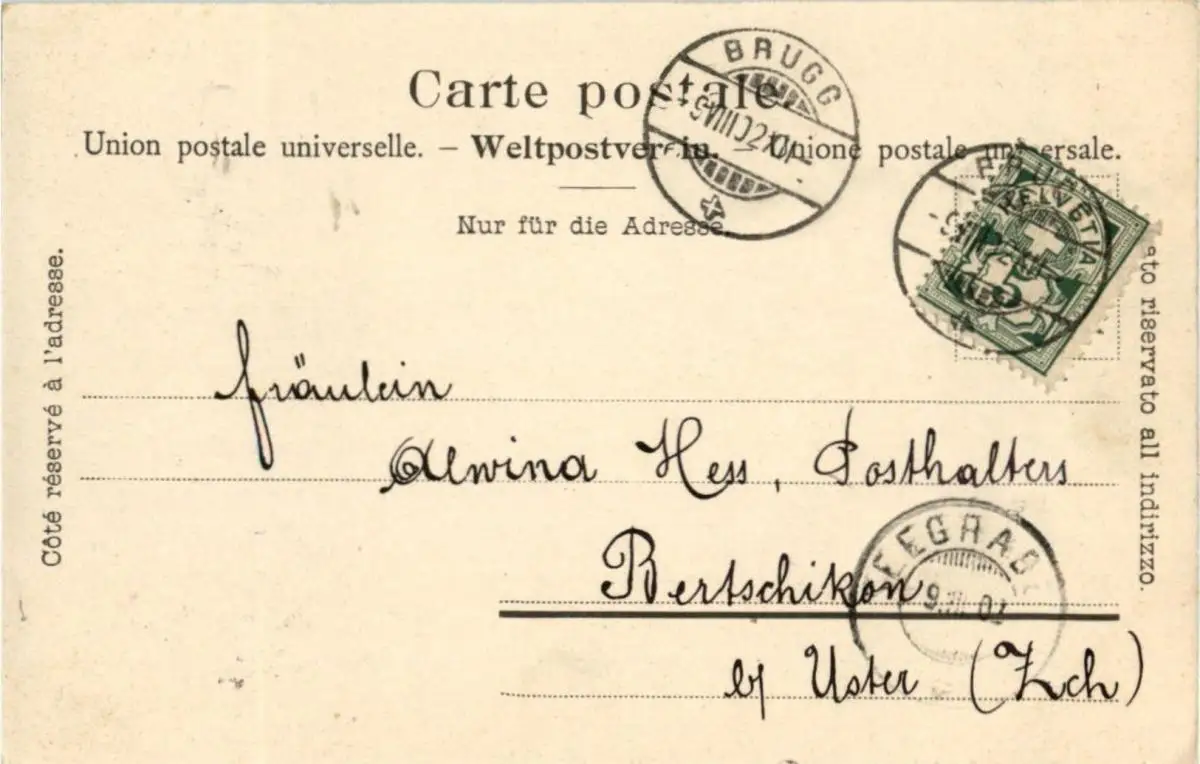 BRUGG
Carte postale.
-9.VIII.02.XI-
Union postale universelle. – Weltpostverein. – Unione postale universale.
Nur für die Adresse.
HELVETIA
Côté réservé à l'adresse.
ato riservato all indirizzo.
Fräulein
Alwina Hess, Posthalters
Bertschikon
9.VIII.02
b/ Uster (Zch)